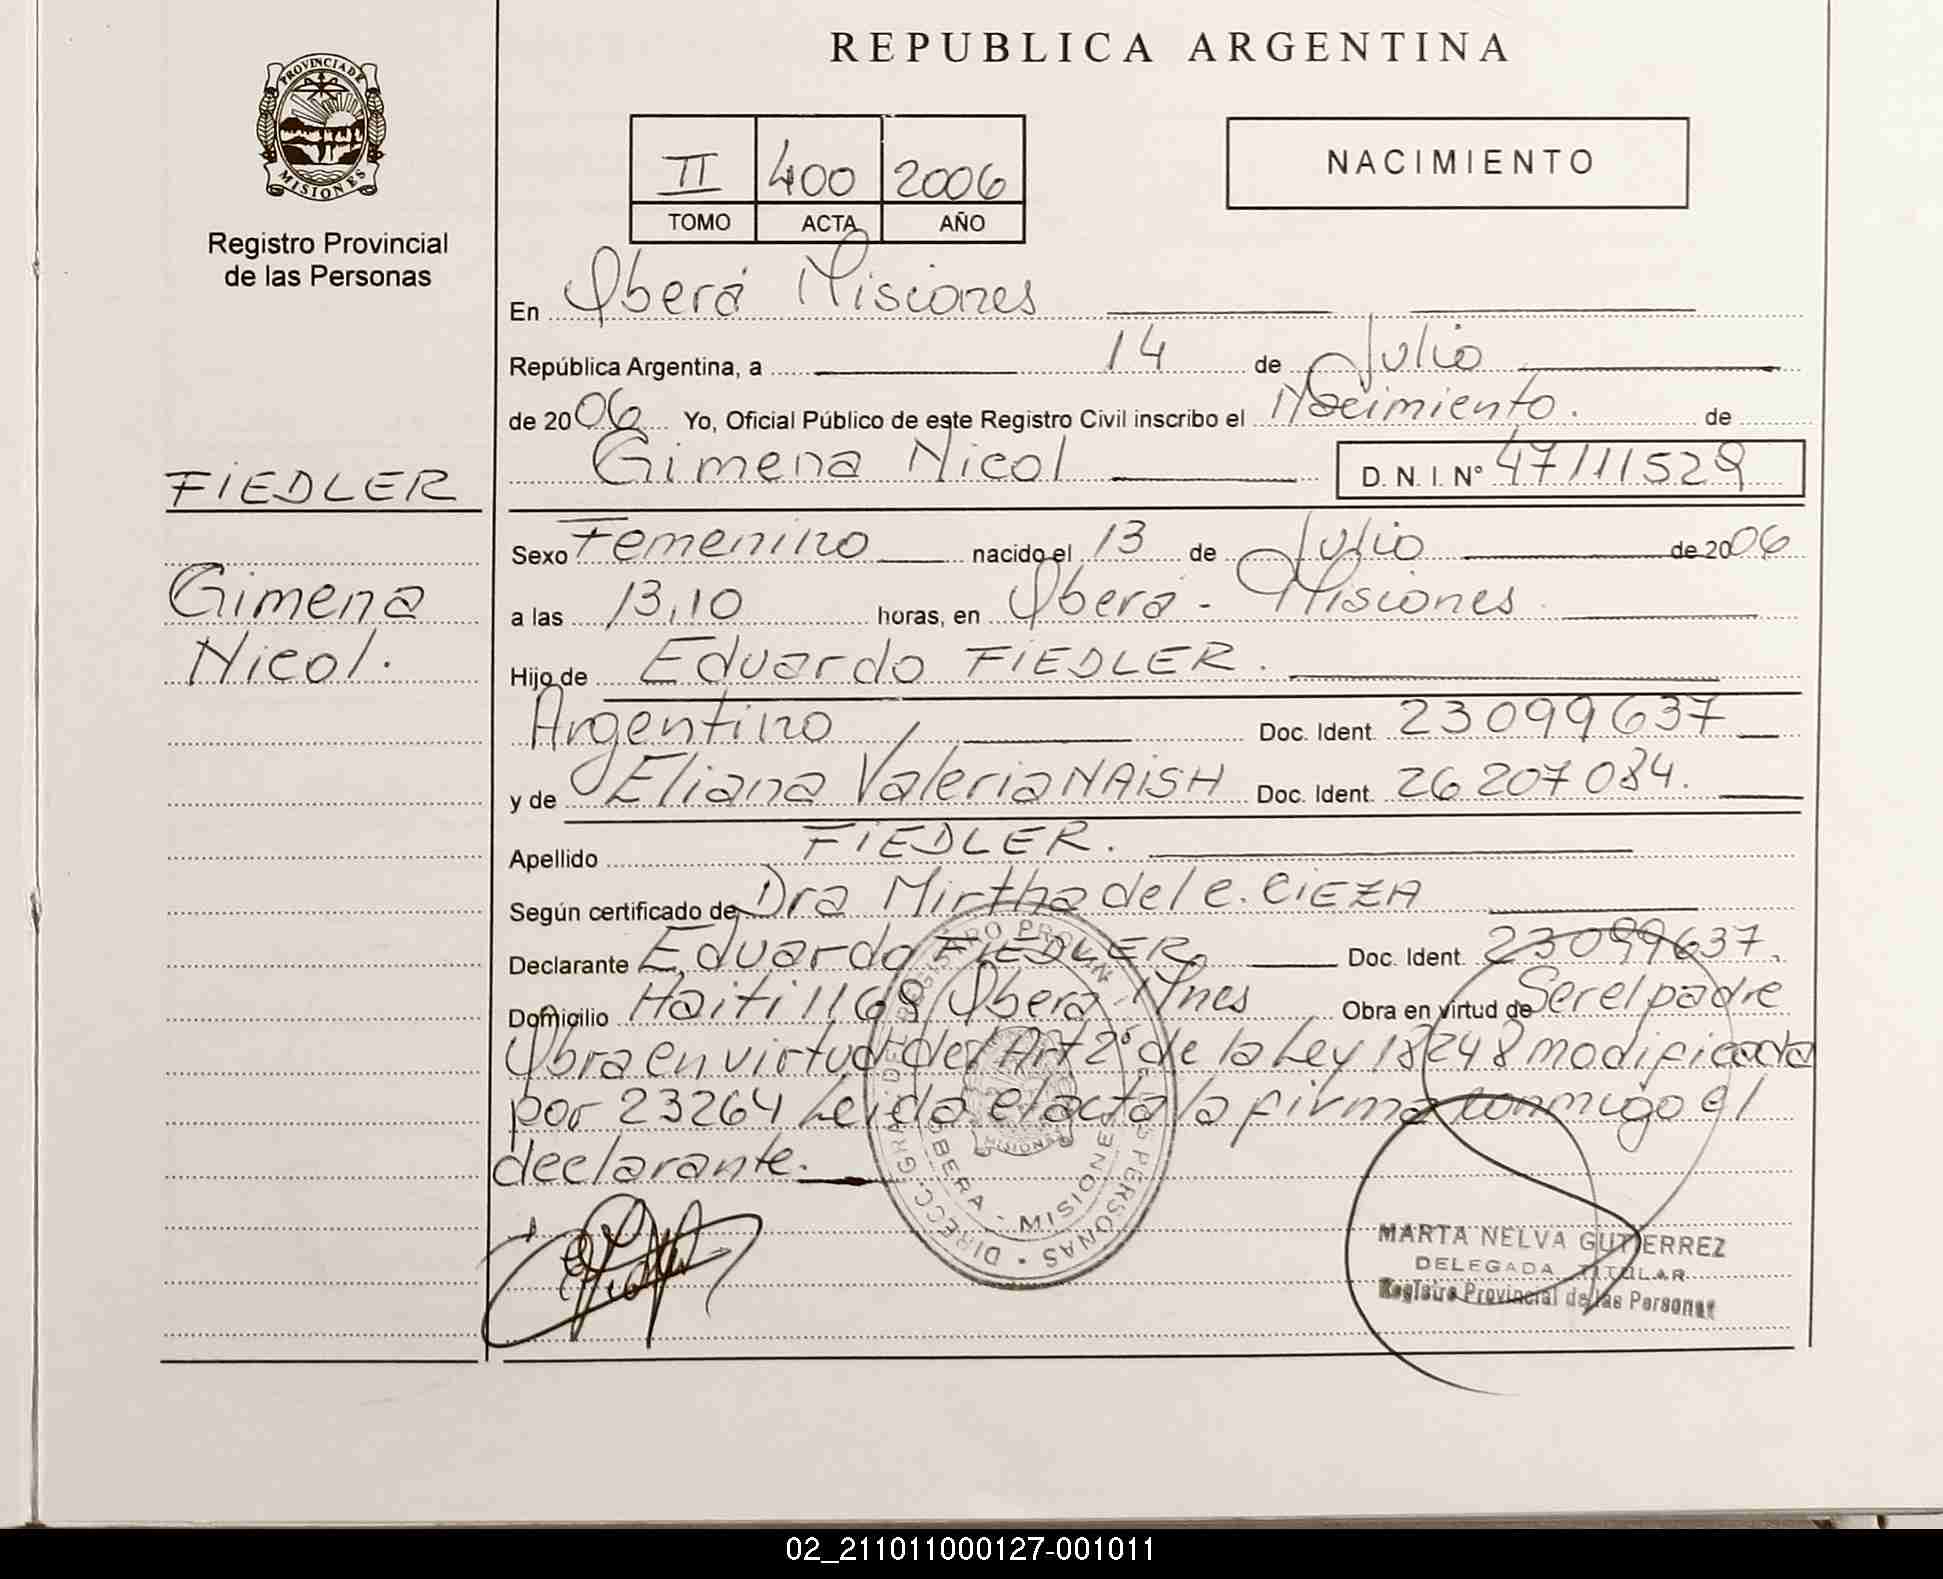 PROVINCIA DE
MISIONES
Registro Provincial
de las Personas
REPUBLICA ARGENTINA
II 400 2006
TOMO ACTA AÑO
NACIMIENTO
En Oberá Misiones
República Argentina, a 14 de Julio
de 2006 Yo, Oficial Público de este Registro Civil inscribo el Nacimiento. de
Gimena Nicol D. N. I. N° 47111529
FIEDLER
Gimena
Nicol.
Sexo Femenino nacido el 13 de Julio de 2006
a las 13,10 horas, en Oberá - Misiones.
Hijo de Eduardo FIEDLER.
Argentino Doc. Ident. 23099637
y de Eliana Valeria NAISH Doc. Ident. 26207084.
Apellido FIEDLER.
Según certificado de Dra Mirtha del C. CIEZA
Declarante Eduardo FIEDLER Doc. Ident. 23099637.
Domicilio Haiti 1168 Oberá Mnes Obra en virtud de Ser el padre
Obra en virtud del Art 2° de la Ley 18248 modificada
por 23264 Leida el acta la firma conmigo el
declarante.
OBERA - MISIONES
MISIONES
MARTA NELVA GUTIERREZ
DELEGADA TITULAR
Registro Provincial de las Personas
02_211011000127-001011